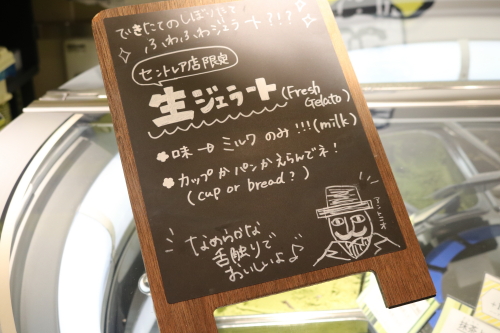 できたてのしぼりたて
ふわふわジェラート?!?
セントレア店限定
生ジェラート(Fresh Gelato)
味→ミルクのみ!!!(milk)
カップかパンかえらんでネ!
(cup or bread?)
なめらかな
舌触りで
おいしいよ♪